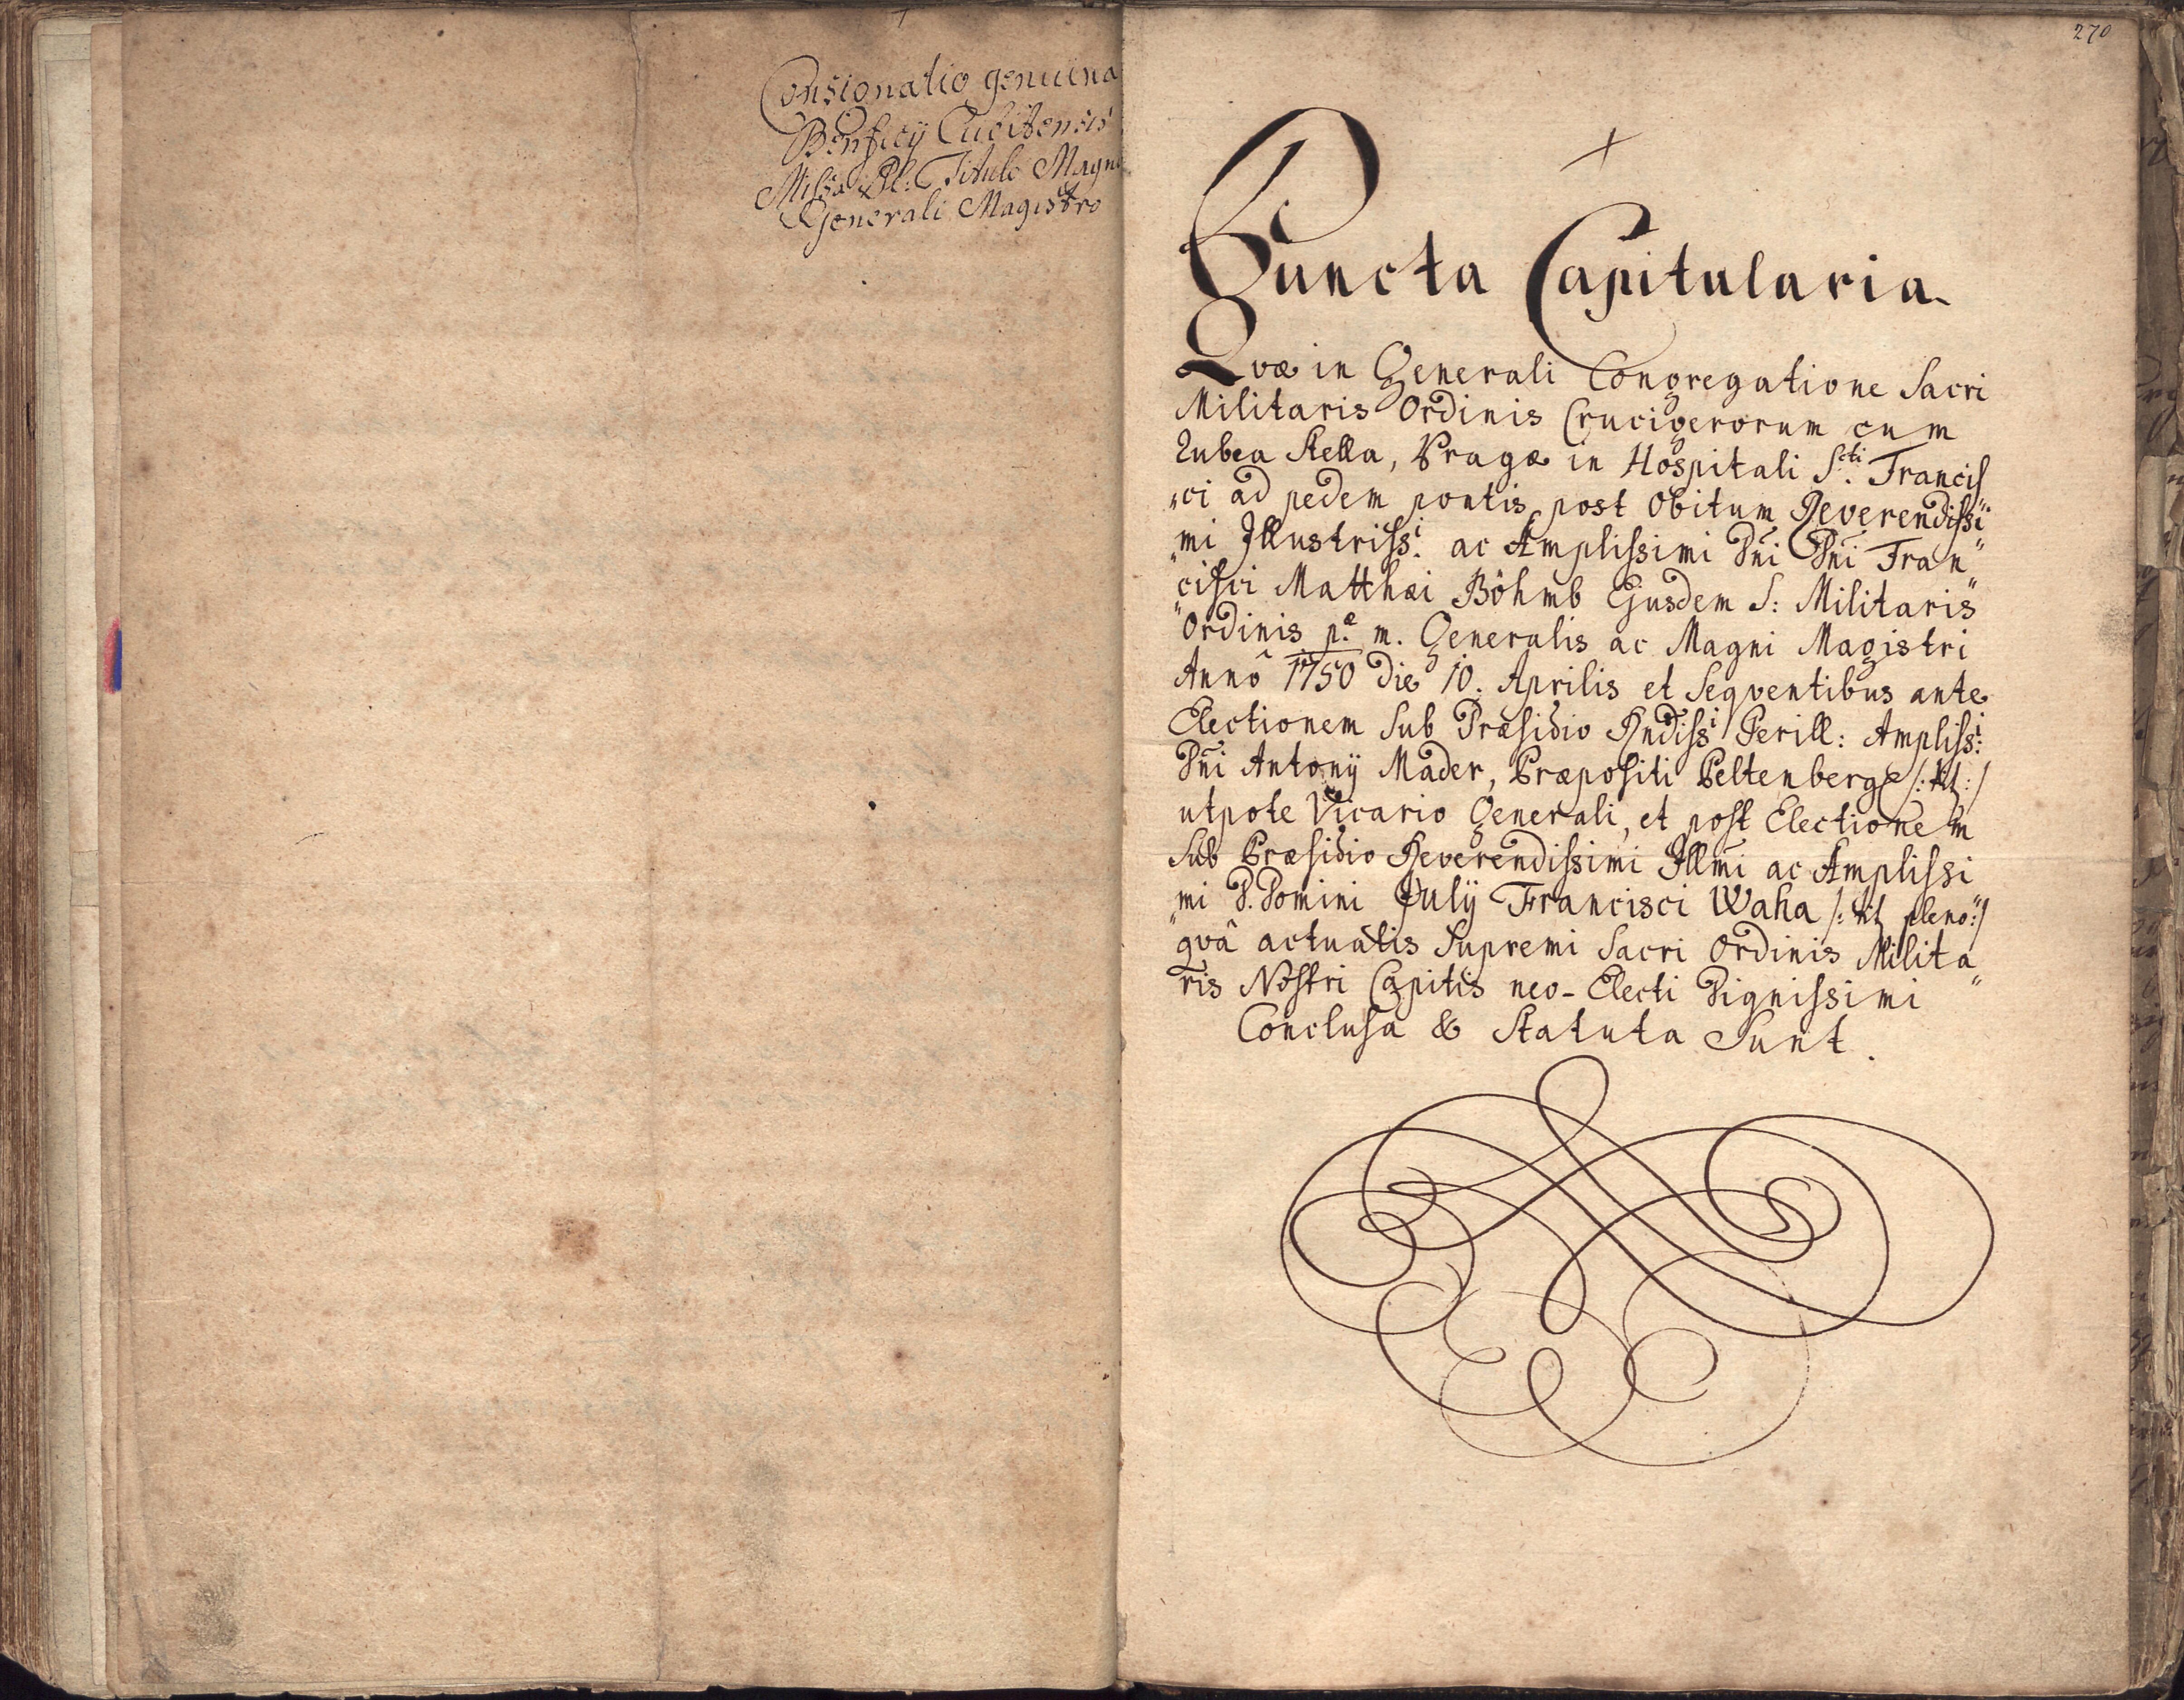 Consignatio genuina
Beneficÿ Cubitensis
Missa Pl: Titulo Magno
Generali Magistro
270
Puncta Capitularia
Qvæ in Generali Congregatione Sacri
Militaris Ordinis Crucigerorum cum
Rubea Stella, Pragæ in Hospitali S.cti Francis
„ci ad pedem pontis post Obitum Reverendissi„
„mi Illustriss.i ac Amplissimi Dn̄i Dn̄i Fran„
„cisci Matthæi Böhmb Ejusdem S: Militaris
Ordinis p.æ m. Generalis ac Magni Magistri
Annô 1750 die 10. Aprilis et Seqventibus ante
Electionem Sub Præsidio Rndiss.i Perill: Ampliss:i
Dn̄i Antonÿ Mader, Præpositi Peltenberg /: tit :/
utpote Vicario Generali, et post Electionem
Sub Præsidio Reverendissimi Illm̄i ac Amplissi
„mi D. Domini Julÿ Francisci Waha /: tit pleno :/
qvâ actualis Supremi Sacri Ordinis Milita„
ris Nostri Capitis neo-Electi Dignissimi
Conclusa & Statuta Sunt.